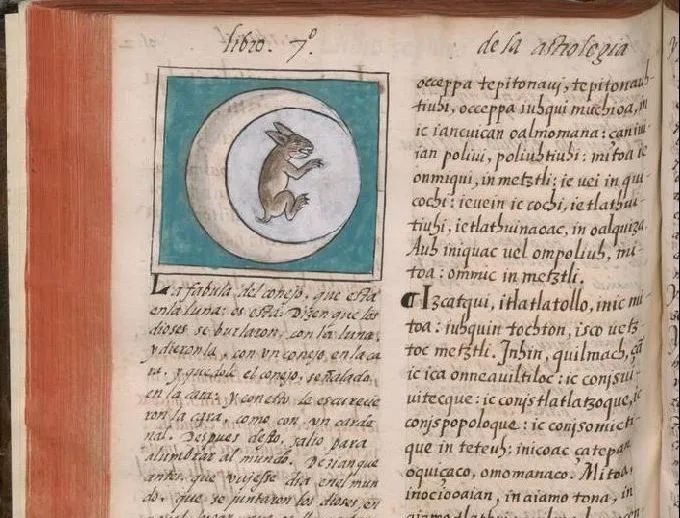 libro. 7º.
de la astrologia
La fabula del conejo, que esta
en la luna: es esta. Dizen que los
dioses se burlaron, con la luna,
y dieronla, con vn conejo en la ca
ra. y quedole el conejo, señalado
en la cara: y con esto le escurecie
ron la cara, como con vn carde
nal. Despues desto, salio para
alumbrar al mundo. Dezian que
antes que vuiesse dia en el mun
do, que se juntaron los dioses, en
occeppa tepitonavi, tepitonauh
tiuh, occeppa iuhqui muchioa, in
ic iancuican oalmomana: çan iui
ian polivi, poliuhtiuh: mitoa ie
onmiqui, in metztli: ie uei in qui
cochi: ieuein ic cochi, ie tlathui
tiuh, ie tlathuinaoac, in oalquiza.
Auh iniquac uel ompoliuh, mi
toa: ommic in metztli.
Izcatqui, itlatlatollo, inic mi
toa: iuhquin tochton, isco uetz
toc metztli. Inhin, quilmach, çã
ic ica onneauiltiloc: ic conisui
uitecque: ic conistlatlatzoque, ic
conispopoloque: ic conisomicti
que in teteuh: inicoac çatepan
oquiçaco, omomanaco. Mitoa,
inoc iooaian, in aiamo tona, in